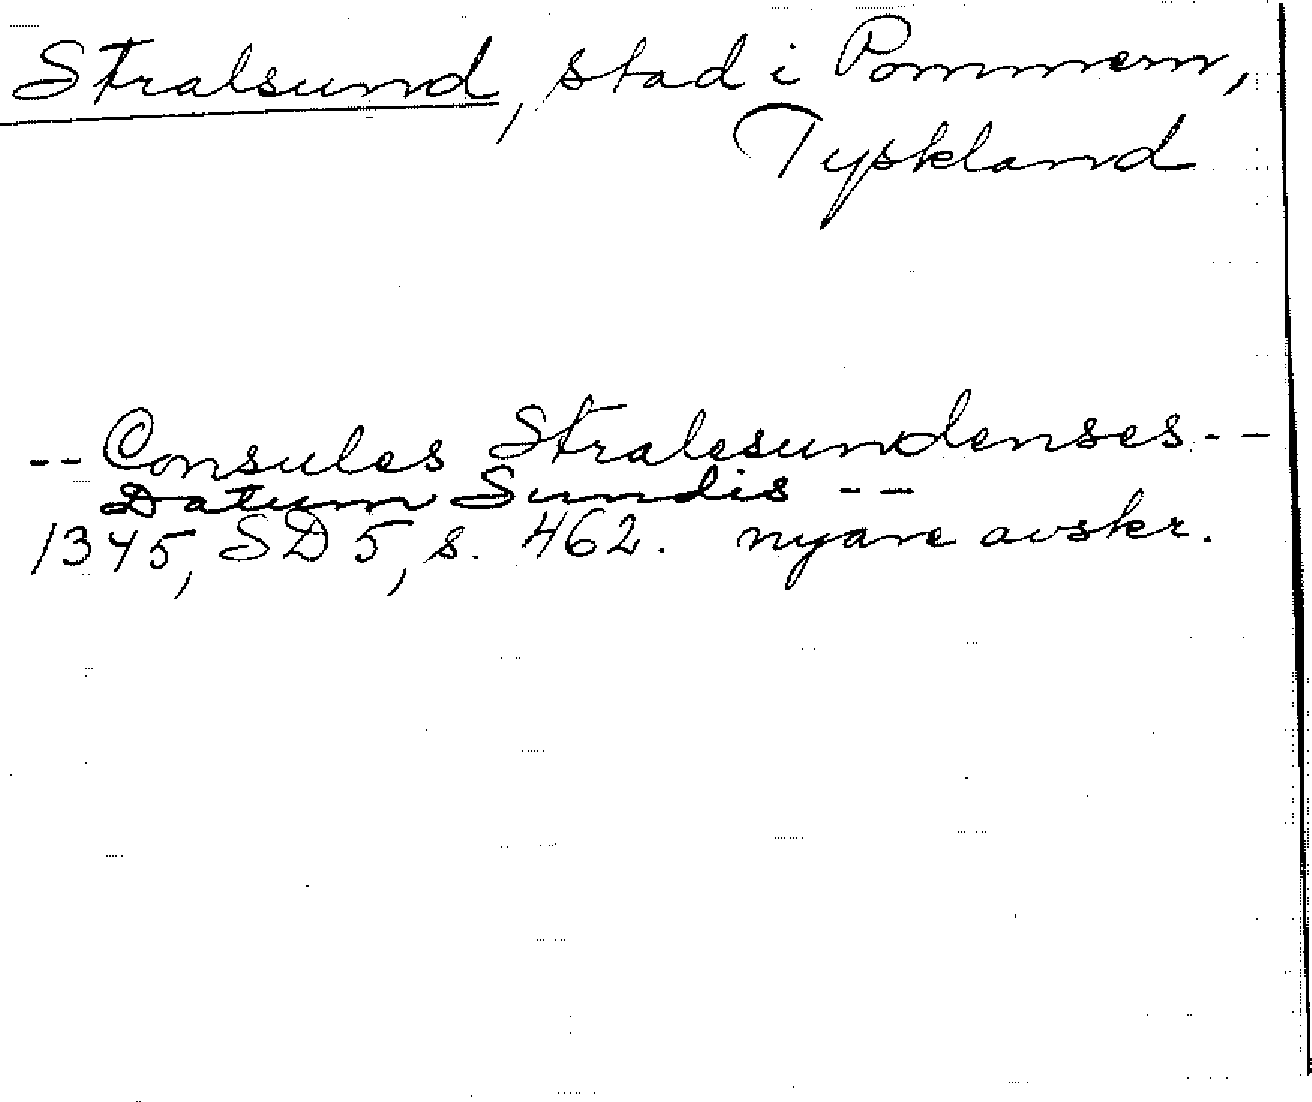 Stralsund, stad i Pommern,
Tyskland
-- Consules Stralesundenses --
Datum Sundis --
1345, SD 5, s. 462. nyare avskr.